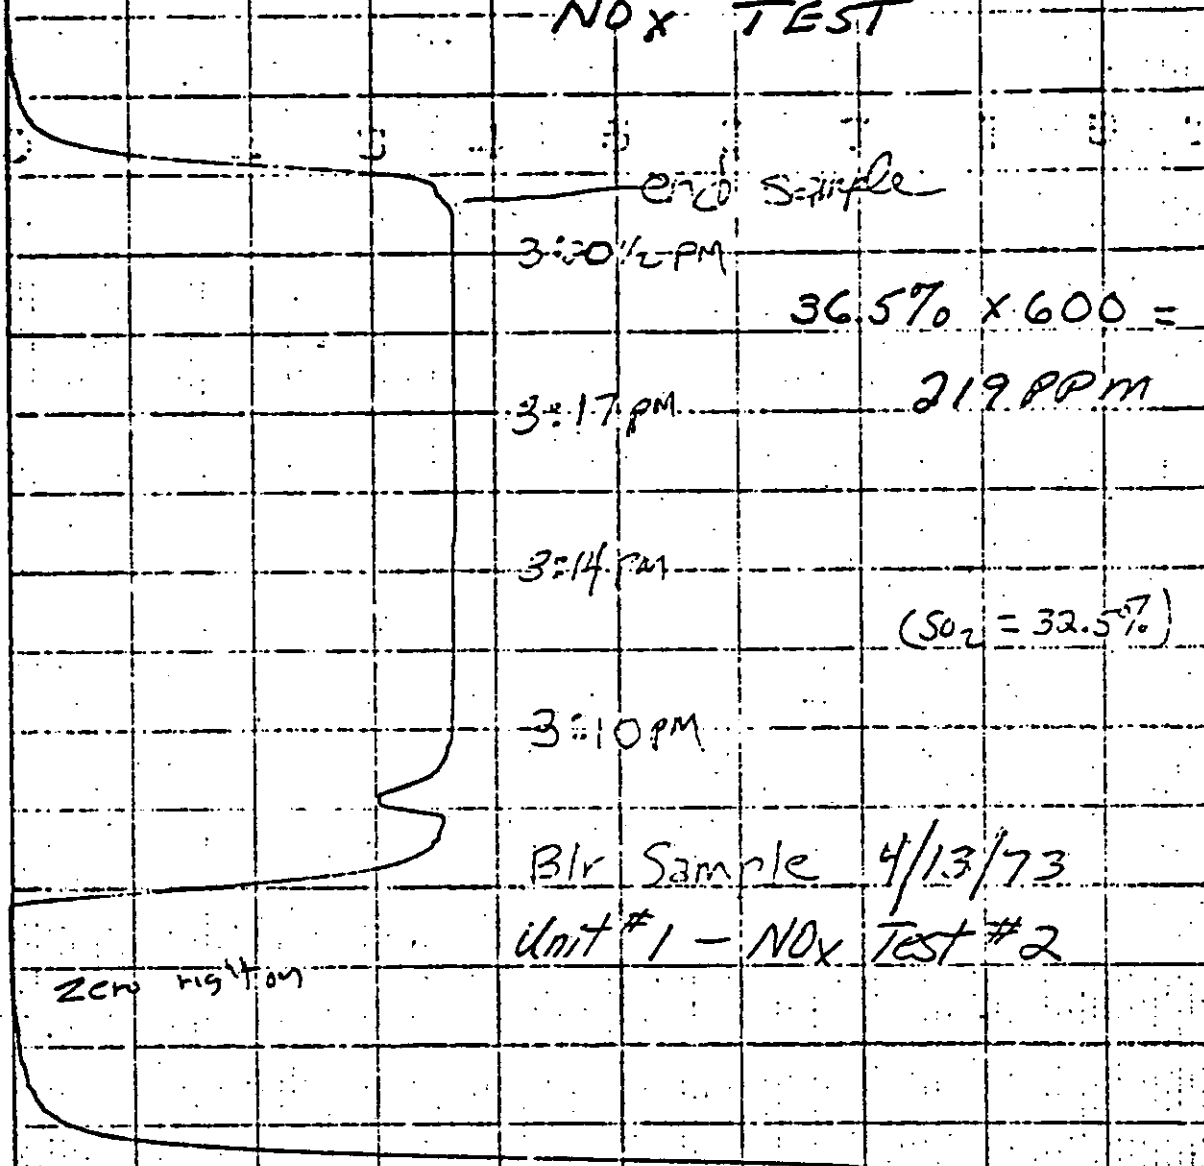 NOx TEST
end sample
3:20 1/2 PM
36.5% x 600 =
219 PPM
3:17 PM
3:14 PM
(SO2 = 32.5%)
3:10 PM
Blr Sample 4/13/73
Unit #1 — NOx Test #2
Zero right on